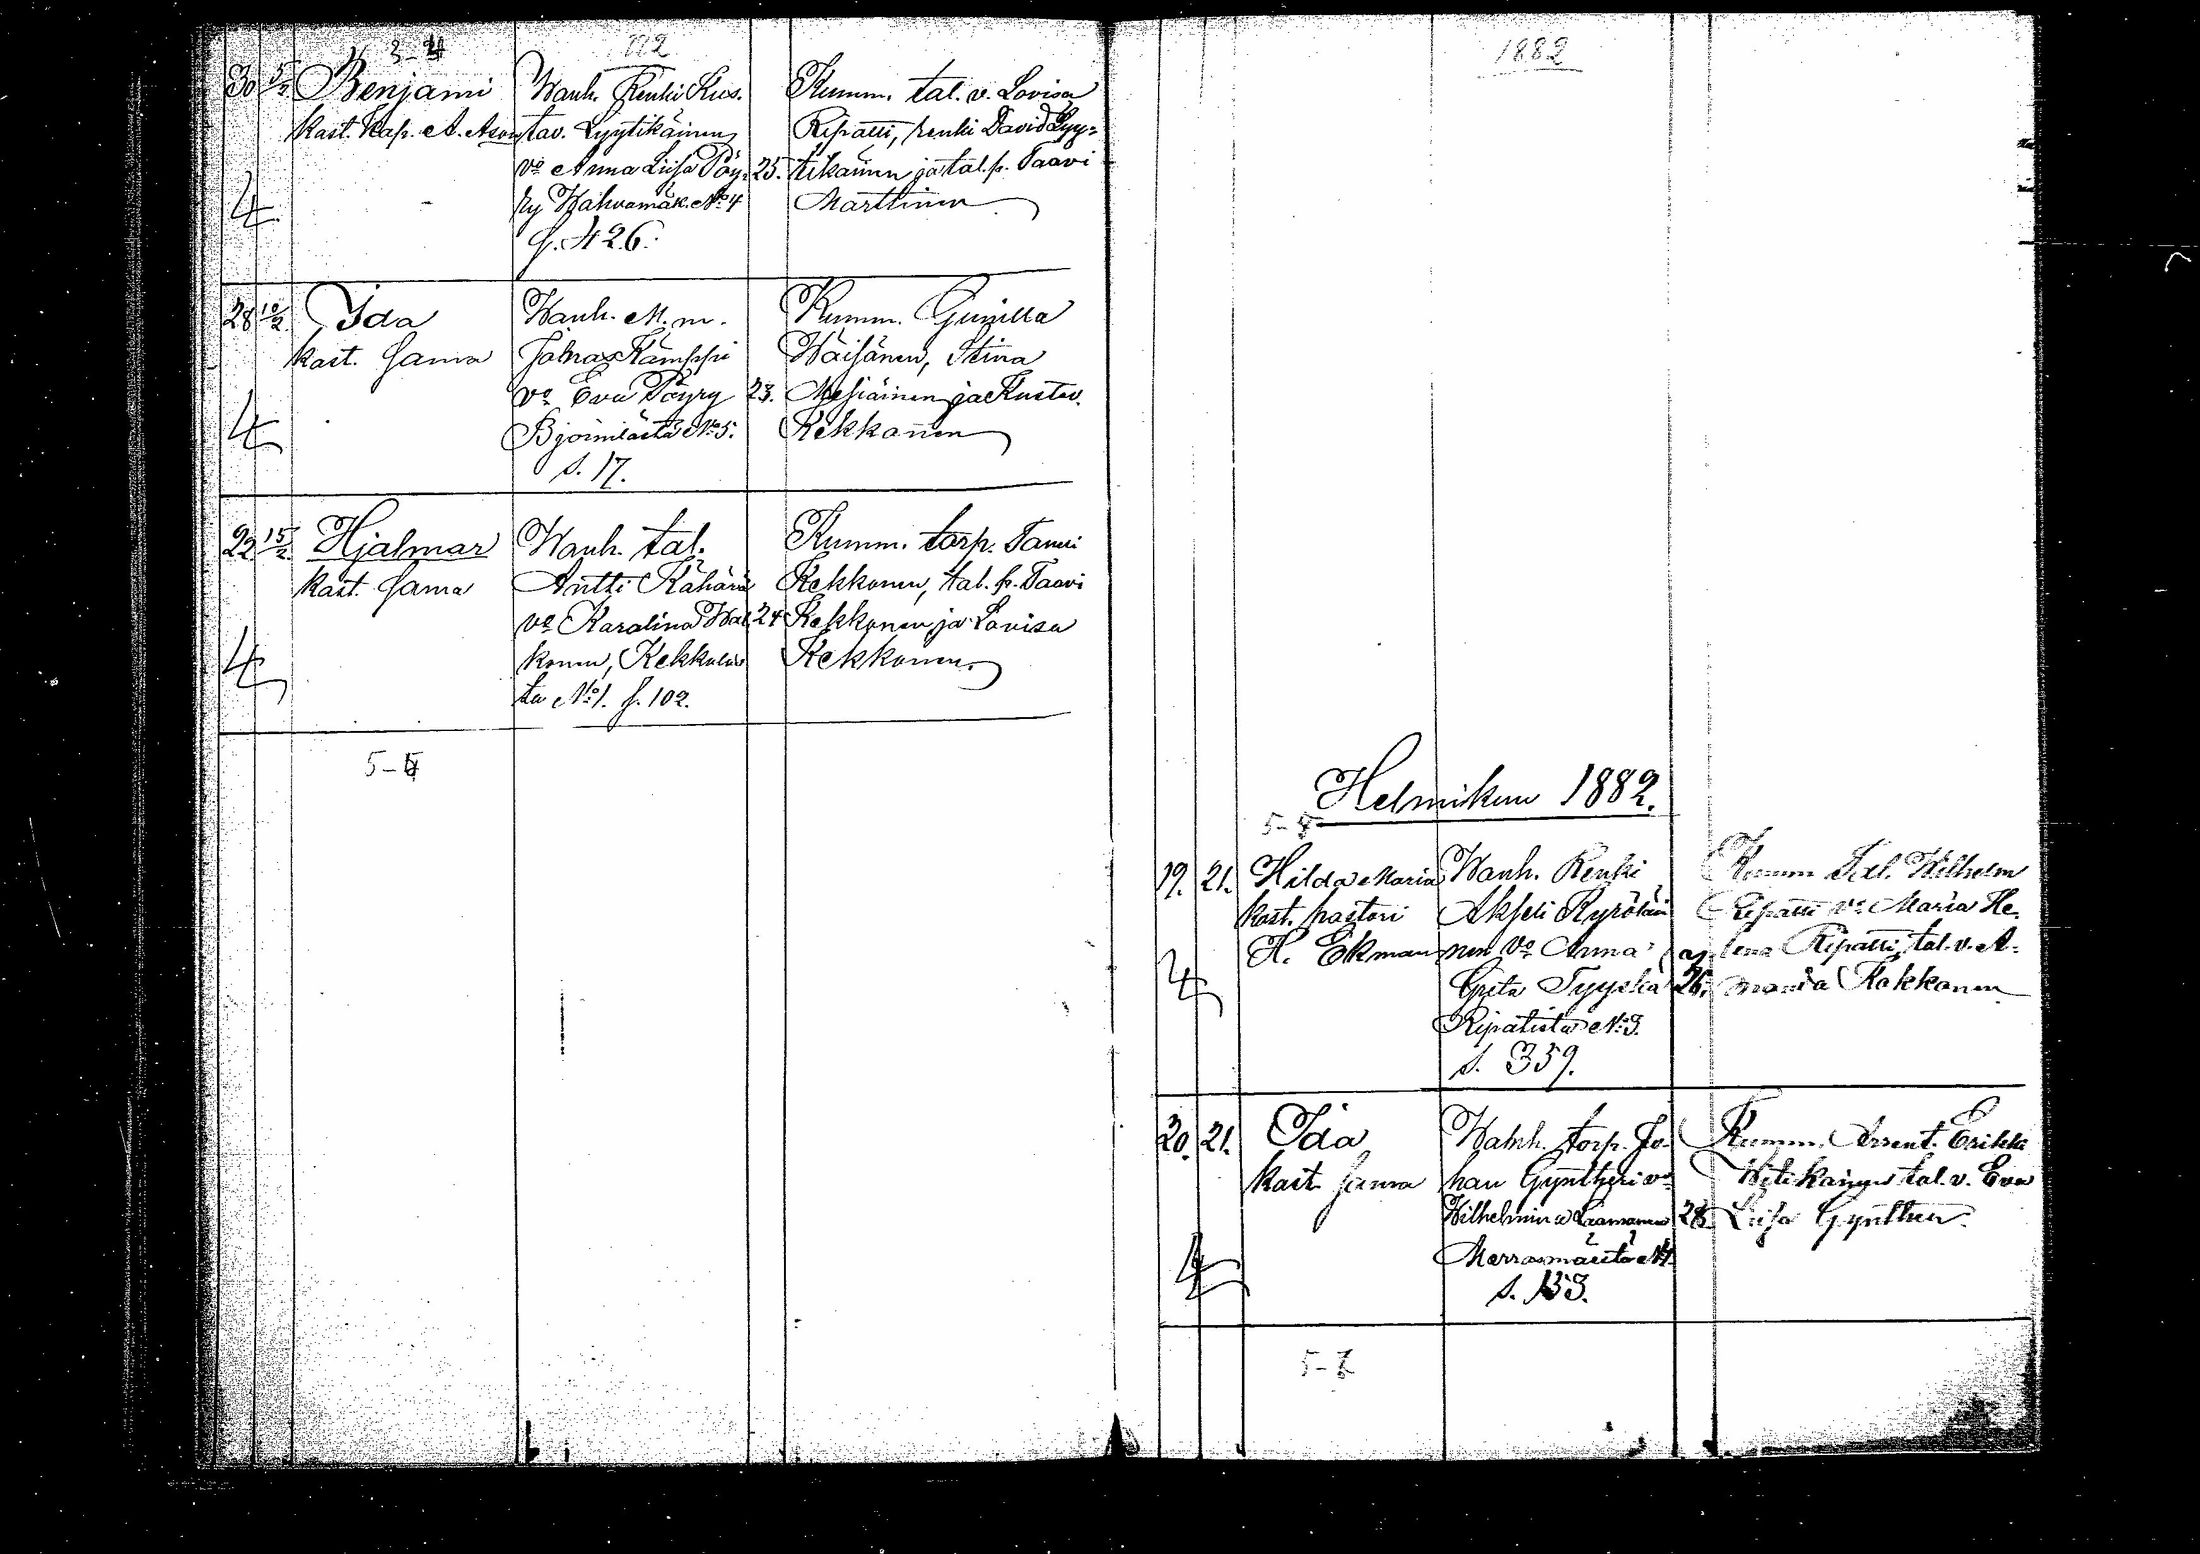 3-4
30 5/2 Benjami
kast. Kap. A. Ason
Wanh. Renki Kus.
tav. Lyytikäinen
vo Anna Liisa Pöy- 25.
ry Wahvamäk. No 4
s. 426.
Kumm. tal. v. Lovisa
Ripatti, renki David Lyy=
tikäinen ja tal. p. Taavi
Marttinen
28 10/2 Ida
kast. sama
Wanh. M. m.
Kämppi
vo Eva Pöyry 23.
Björnilästä No 5.
s. 17.
Kumm. Gunilla
Wäisänen, Stina
Mesiäinen ja Kustav.
Kekkonen
22 15/2 Hjalmar
kast. sama
Wanh. tal.
Antti Kähärä
vo Karolina Wal 24
konen, Kekkolas
ta No 1. s. 102.
Kumm. torp. Taneli
Kekkonen, tal. p. Taavi
Kekkonen ja Lovisa
Kekkonen.
5-6
1882
Helmikuu 1882.
19. 21. Hilda Maria
kast. pastori
H. Ekman
Wanh. Renki
Akseli Kyröläi
nen vo Anna
Greta Tyyskä 26.
Ripatista No 3.
s. 359.
Kumm Wilhelm
Ripatti vo Maria He.
lena Ripatti, tal. v. A.
manda Kokkonen
20. 21. Ida
kast. sama
Wanh. torp. Jo-
han Gyntheri vo
Wilhelmina 28
s. 133.
Kumm. Arrent. Erikki
tal. v. Eva
Liisa Gynther.